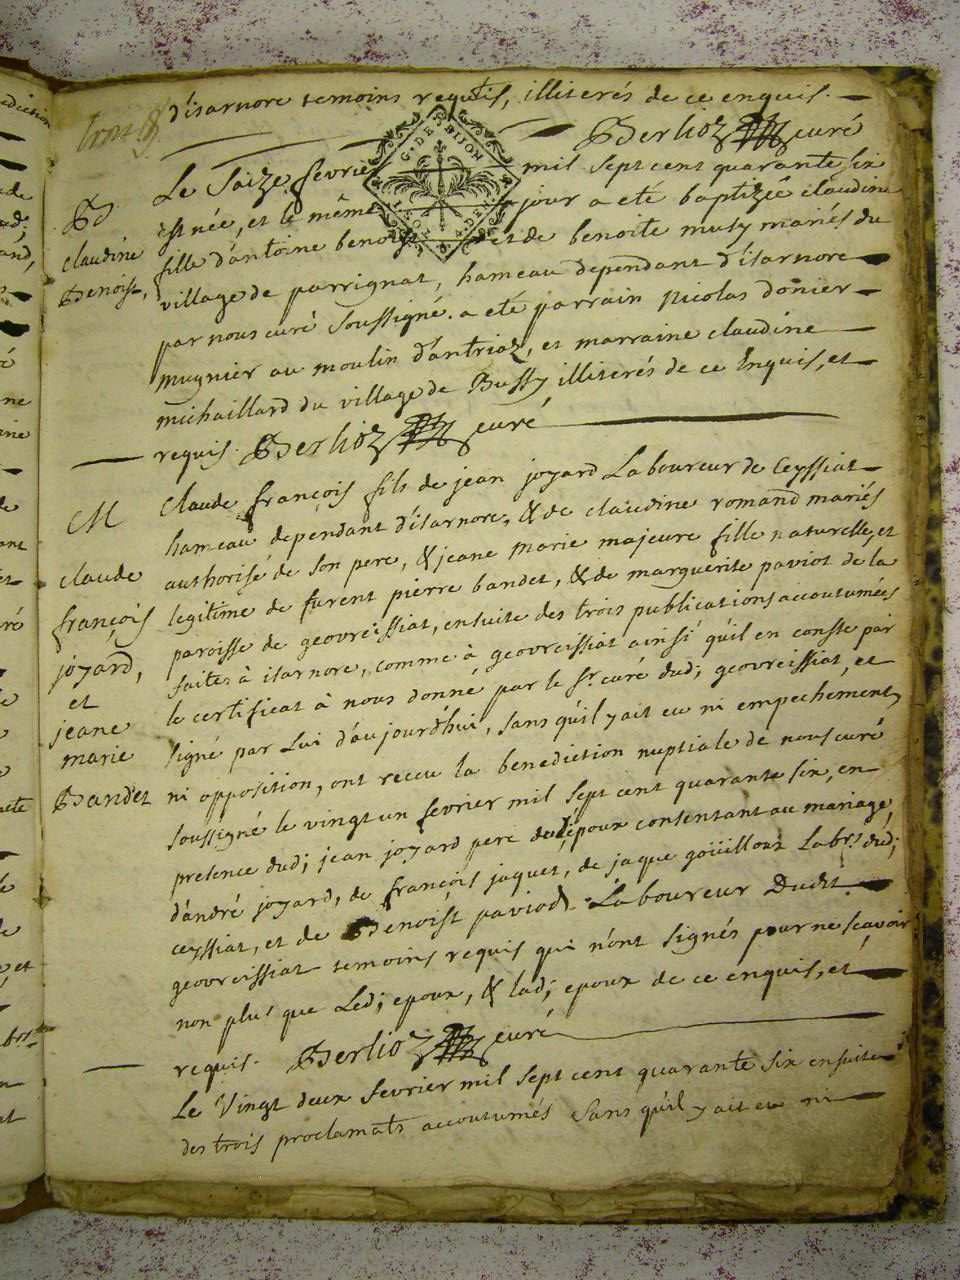 d'isarnore temoins requis, illiterés de ce enquis.
Berlioz curé
G. DE DIJON
Bd
claudine
Benoist,
Le Saize fevrier mil sept cent quarante six
est née, et le même jour a eté baptizée claudine
fille d'antoine benoist et de benoite musy mariés du
village de parrignat, hameau dependant d'isarnore
par nous curé soussigné. a eté parrain nicolas donier
mugnier au moulin d'antriaz, et marraine claudine
michaillard du village de Bussy illiterés de ce Enquis, et
requis. Berlioz curé
M
claude
françois
joyard,
et
jeane
marie
Bandet
Claude françois fils de jean joyard Laboureur de Ceyssiat
hameau dependant d'isarnore, & de claudine romand mariés
authorisé de son pere, & jeane marie majeure fille naturelle, et
legitime de furent pierre bandet, & de marguerite paviot de la
paroisse de geovreissiat, ensuite des trois publications accoutumées
faites à isarnore, comme à geovreissiat ainsi qu'il en conste par
le certificat à nous donné par le sr. curé dud; geovreissiat, et
signé par Lui d'aujourd'hui, sans qu'il y ait eu ni empechement,
ni opposition, ont receu la benediction nuptiale de nous curé
soussigné le vingt un fevrier mil sept cent quarante six, en
presence dud; jean joyard pere dud; époux consentant au mariage,
d'andré joyard, de françois jaquet, de jaque goüilloux Labrs. dud;
ceyssiat, et de Benoist paviod Laboureur Dudt
geovreissiat temoins requis qui n'ont signés pour ne sçavoir
non plus que Led; epoux, & lad; epoux de ce enquis, et
requis. Berlioz curé
Le Vingt deux fevrier mil sept cent quarante six ensuite
des trois proclamats accoutumés sans qu'il y ait eu ni